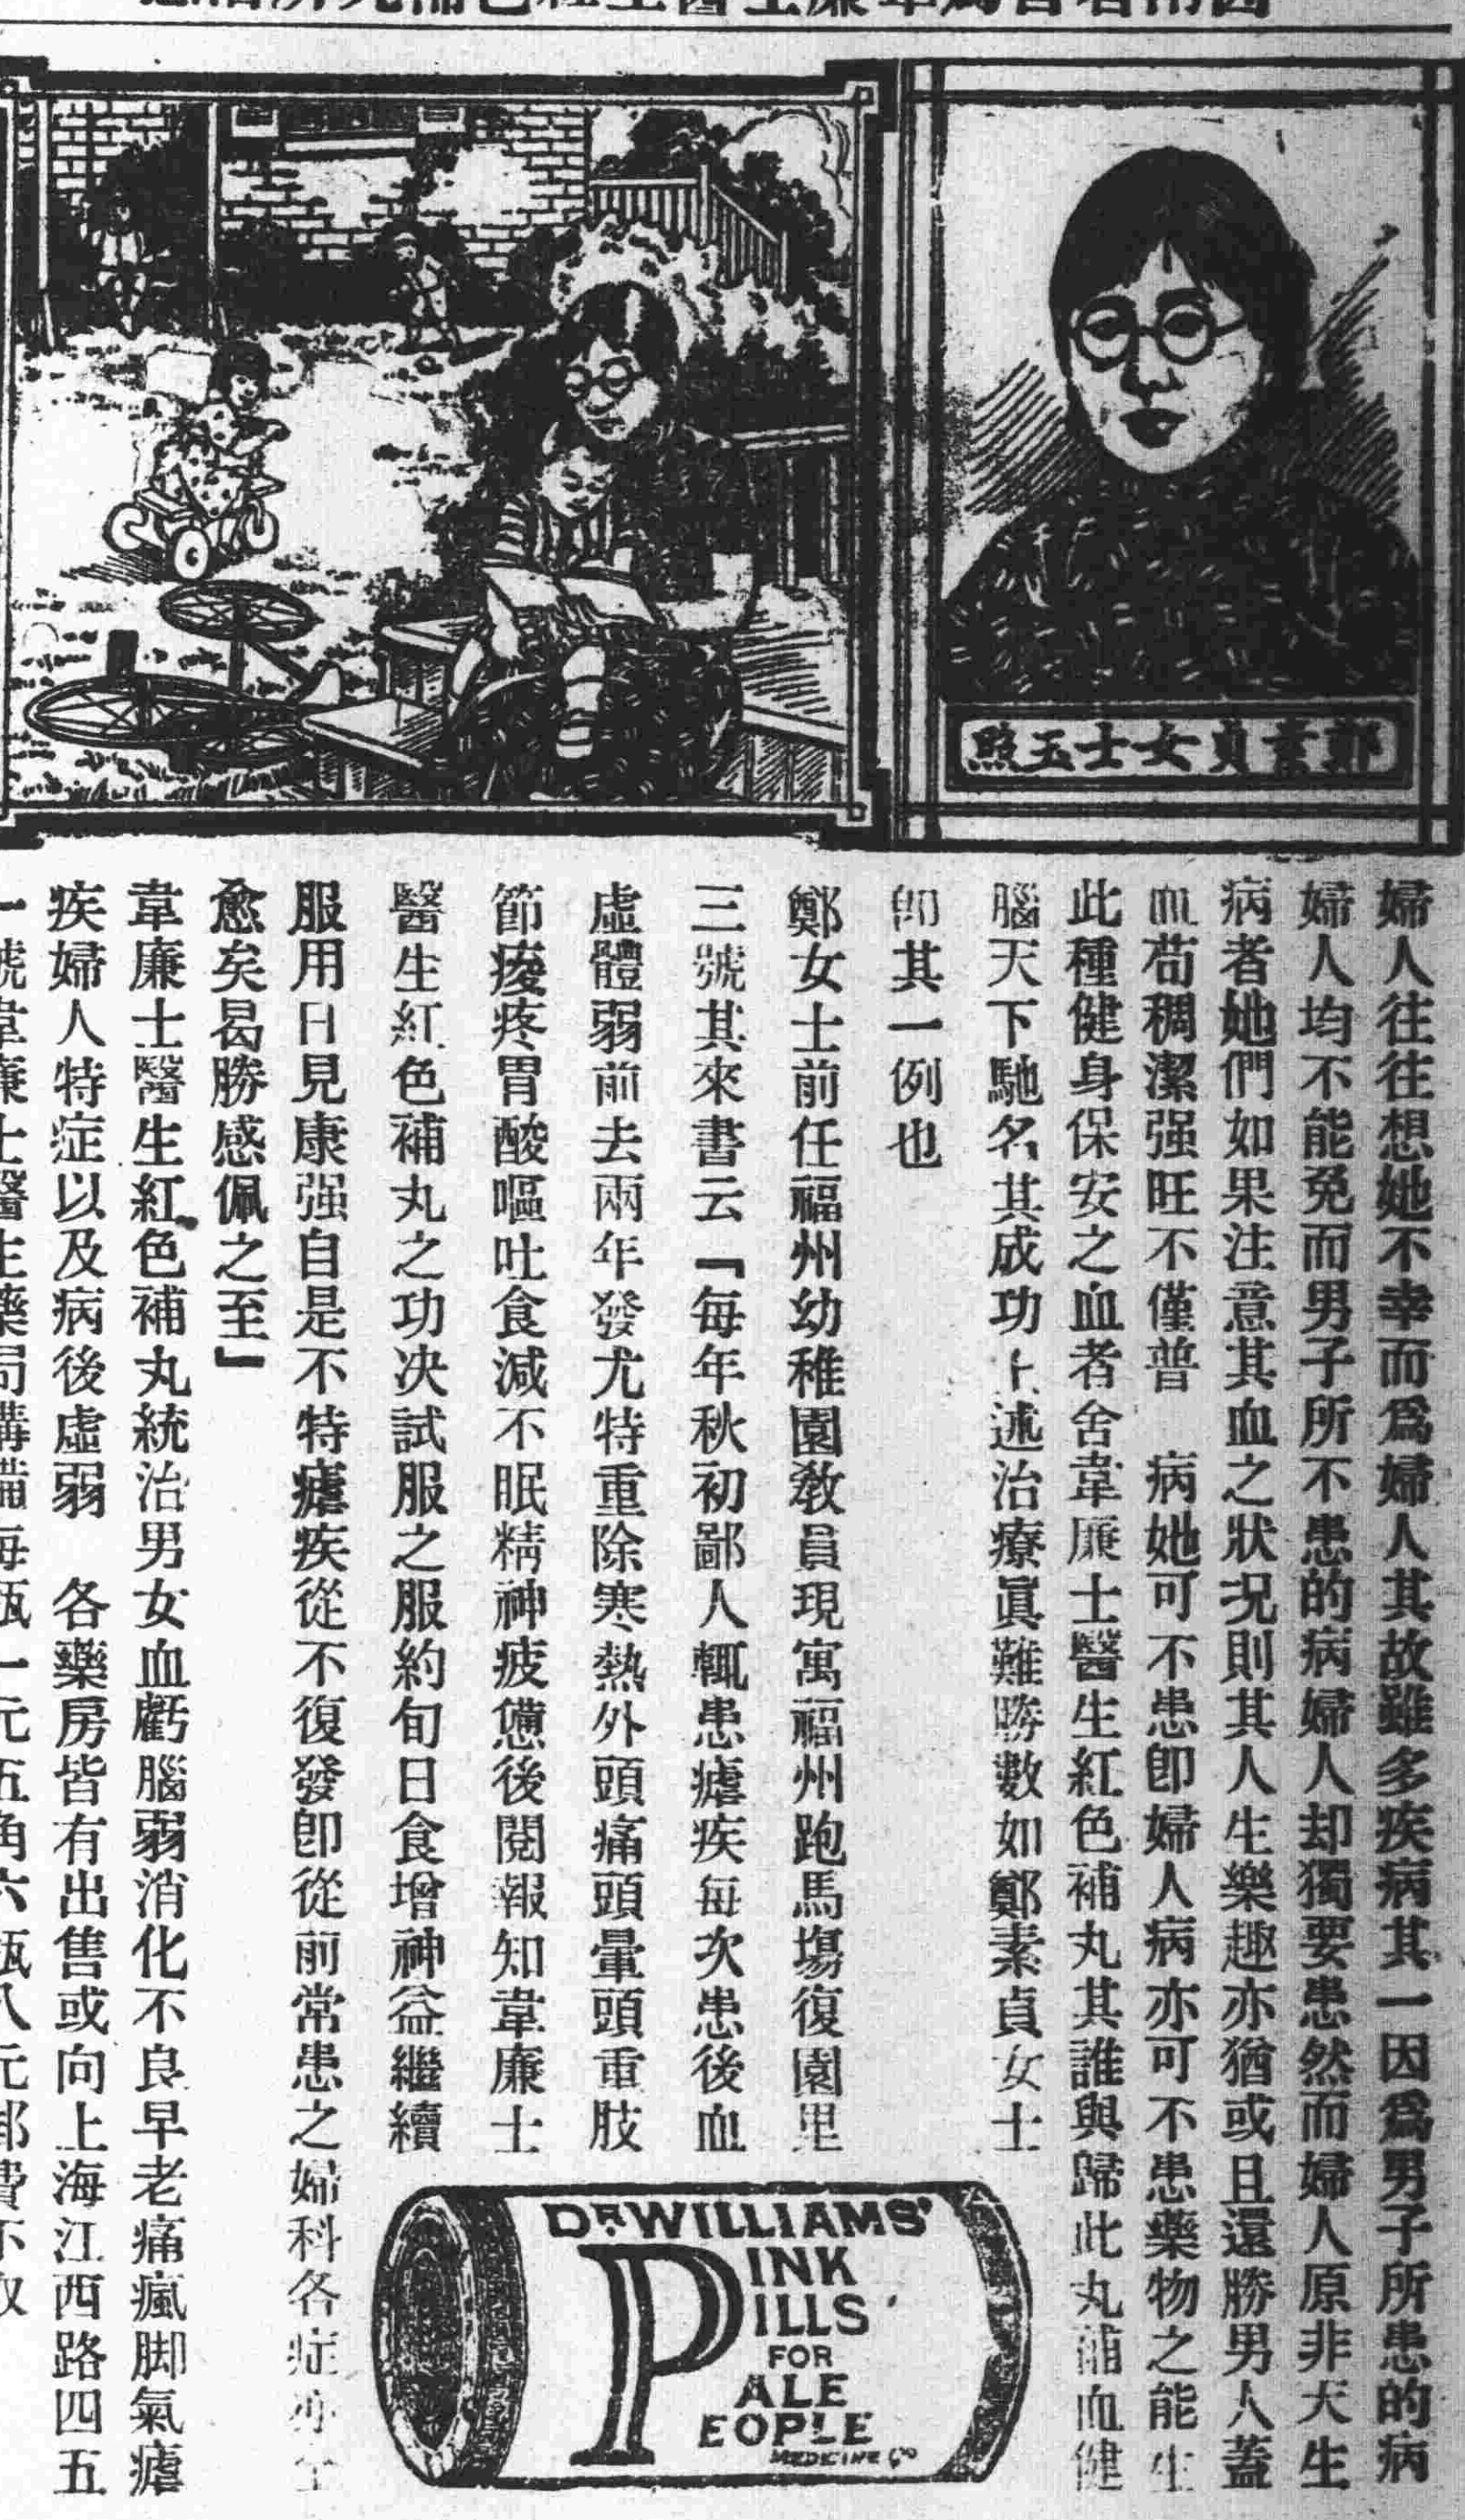 鄭素貞女士玉照
婦人往往想她不幸而爲婦人其故雖多疾病其一因爲男子所患的病
婦人均不能免而男子所不患的病婦人却獨要患然而婦人原非天生
病者她們如果注意其血之狀况則其人生樂趣亦猶或且還勝男人蓋
血苟稠潔强旺不僅普 病她可不患卽婦人病亦可不患藥物之能生
此種健身保安之血者舍韋廉士醫生紅色補丸其誰與歸此丸補血健
腦天下馳名其成功上述治療眞難勝數如鄭素貞女士
卽其一例也
鄭女士前任福州幼稚園敎員現寓福州跑馬塲復園里
三號其來書云「每年秋初鄙人輒患瘧疾每次患後血
虛體弱前去兩年發尤特重除寒熱外頭痛頭暈頭重肢
節痠疼胃酸嘔吐食減不眠精神疲憊後閱報知韋廉士
醫生紅色補丸之功决試服之服約旬日食增神益繼續
服用日見康强自是不特瘧疾從不復發卽從前常患之婦科各症亦全
愈矣曷勝感佩之至」
韋廉士醫生紅色補丸統治男女血虧腦弱消化不良早老痛瘋脚氣瘧
疾婦人特症以及病後虛弱 各藥房皆有出售或向上海江西路四五
一號韋廉士醫生藥局購備每瓶一元五角六瓶八元郵費不取
DR WILLIAMS'
PINK
PILLS
FOR
PALE
PEOPLE
MEDICINE Co